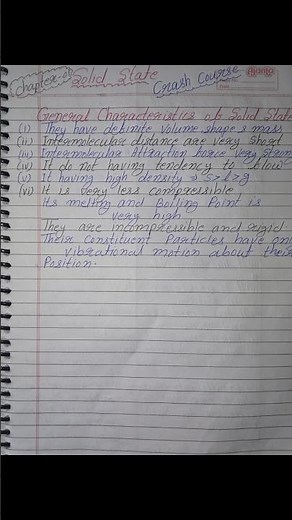 chapter-01
Solid State
Crash Course
Ajanta
Date
General Characteristics of Solid State
(i) They have definite volume shape & mass
(ii) Intermolecular distance are very short
(iii) Intermolecular Attraction force very strong
(iv) It do not having tendency to flow
(v) It having high density ⇒ S>l>g
(vi) It is very less compressible.
Its melting and Boiling Point is
very high
They are incompressible and rigid
Their constituent Particles have on
vibrational motion about their
Position.